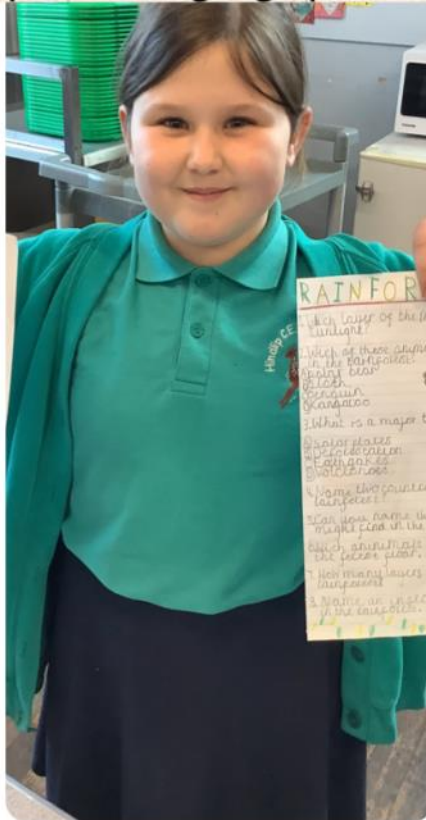 Hindlip CE
RAINFOR
1. Which layer of the
sunlight?
2. Wich of these anima
in the rainforest?
polar bear
sloth
penguin
kangaroo
3. What is a major t
solar plates
Deforestation
Earthqakes
volcanoes
4. Name two
rainforest?
5. Can you name
might find in the
6. Which
the forest floor.
7. How many layers
rainforest
8. Name an insec
in the rainforest.